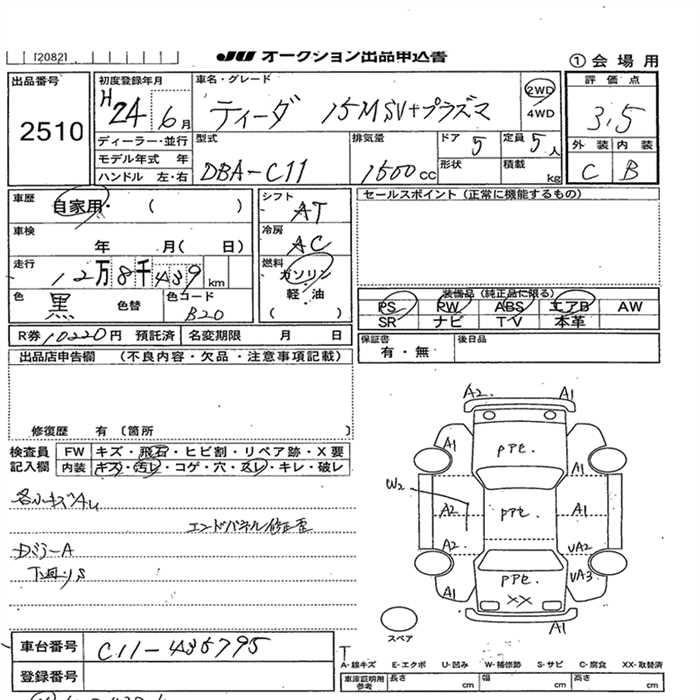 [20821
JU オークション出品申込書
① 会場用
出品番号
2510
初度登録年月
H24 6月
車名・グレード
ティーダ 15M SV+プラズマ
2WD
4WD
評価点
3.5
外装 内装
C B
ディーラー・並行
モデル年式 年
ハンドル 左・右
型式
DBA-C11
排気量
1500cc
ドア
5
形状
定員
5人
積載
kg
車歴
自家用・( )
シフト
AT
セールスポイント(正常に機能するもの)
車検
年 月( 日)
冷房
AC
走行
12万8千439km
燃料
ガソリン
軽・油
( )
色
黒
色替
色コード
B20
装備品(純正品に限る)
PS PW ABS エアB AW
SR ナビ TV 本革
R券 10220円 預託済 名変期限 月 日
保証書
有・無
後日品
出品店申告欄 (不良内容・欠品・注意事項記載)
修復歴 有〔箇所 〕
検査員
記入欄
FW キズ・飛石・ヒビ割・リペア跡・X要
内装 キズ・汚レ・コゲ・穴・スレ・キレ・破レ
各小キズAu
エンドパネル修正歪
DミラーA
下廻りS
A2 A1
A1 PPte. A1
W2
A2 PPte. A1
A2 UA2
A1 PPte. UA3
XX
A1
スペア
車台番号
C11-435795
登録番号
T
A-線キズ E-エクボ U-凹み W-補修跡 S-サビ C-腐食 XX-取替済
車庫証明用
参考
長さ cm 幅 cm 高さ cm